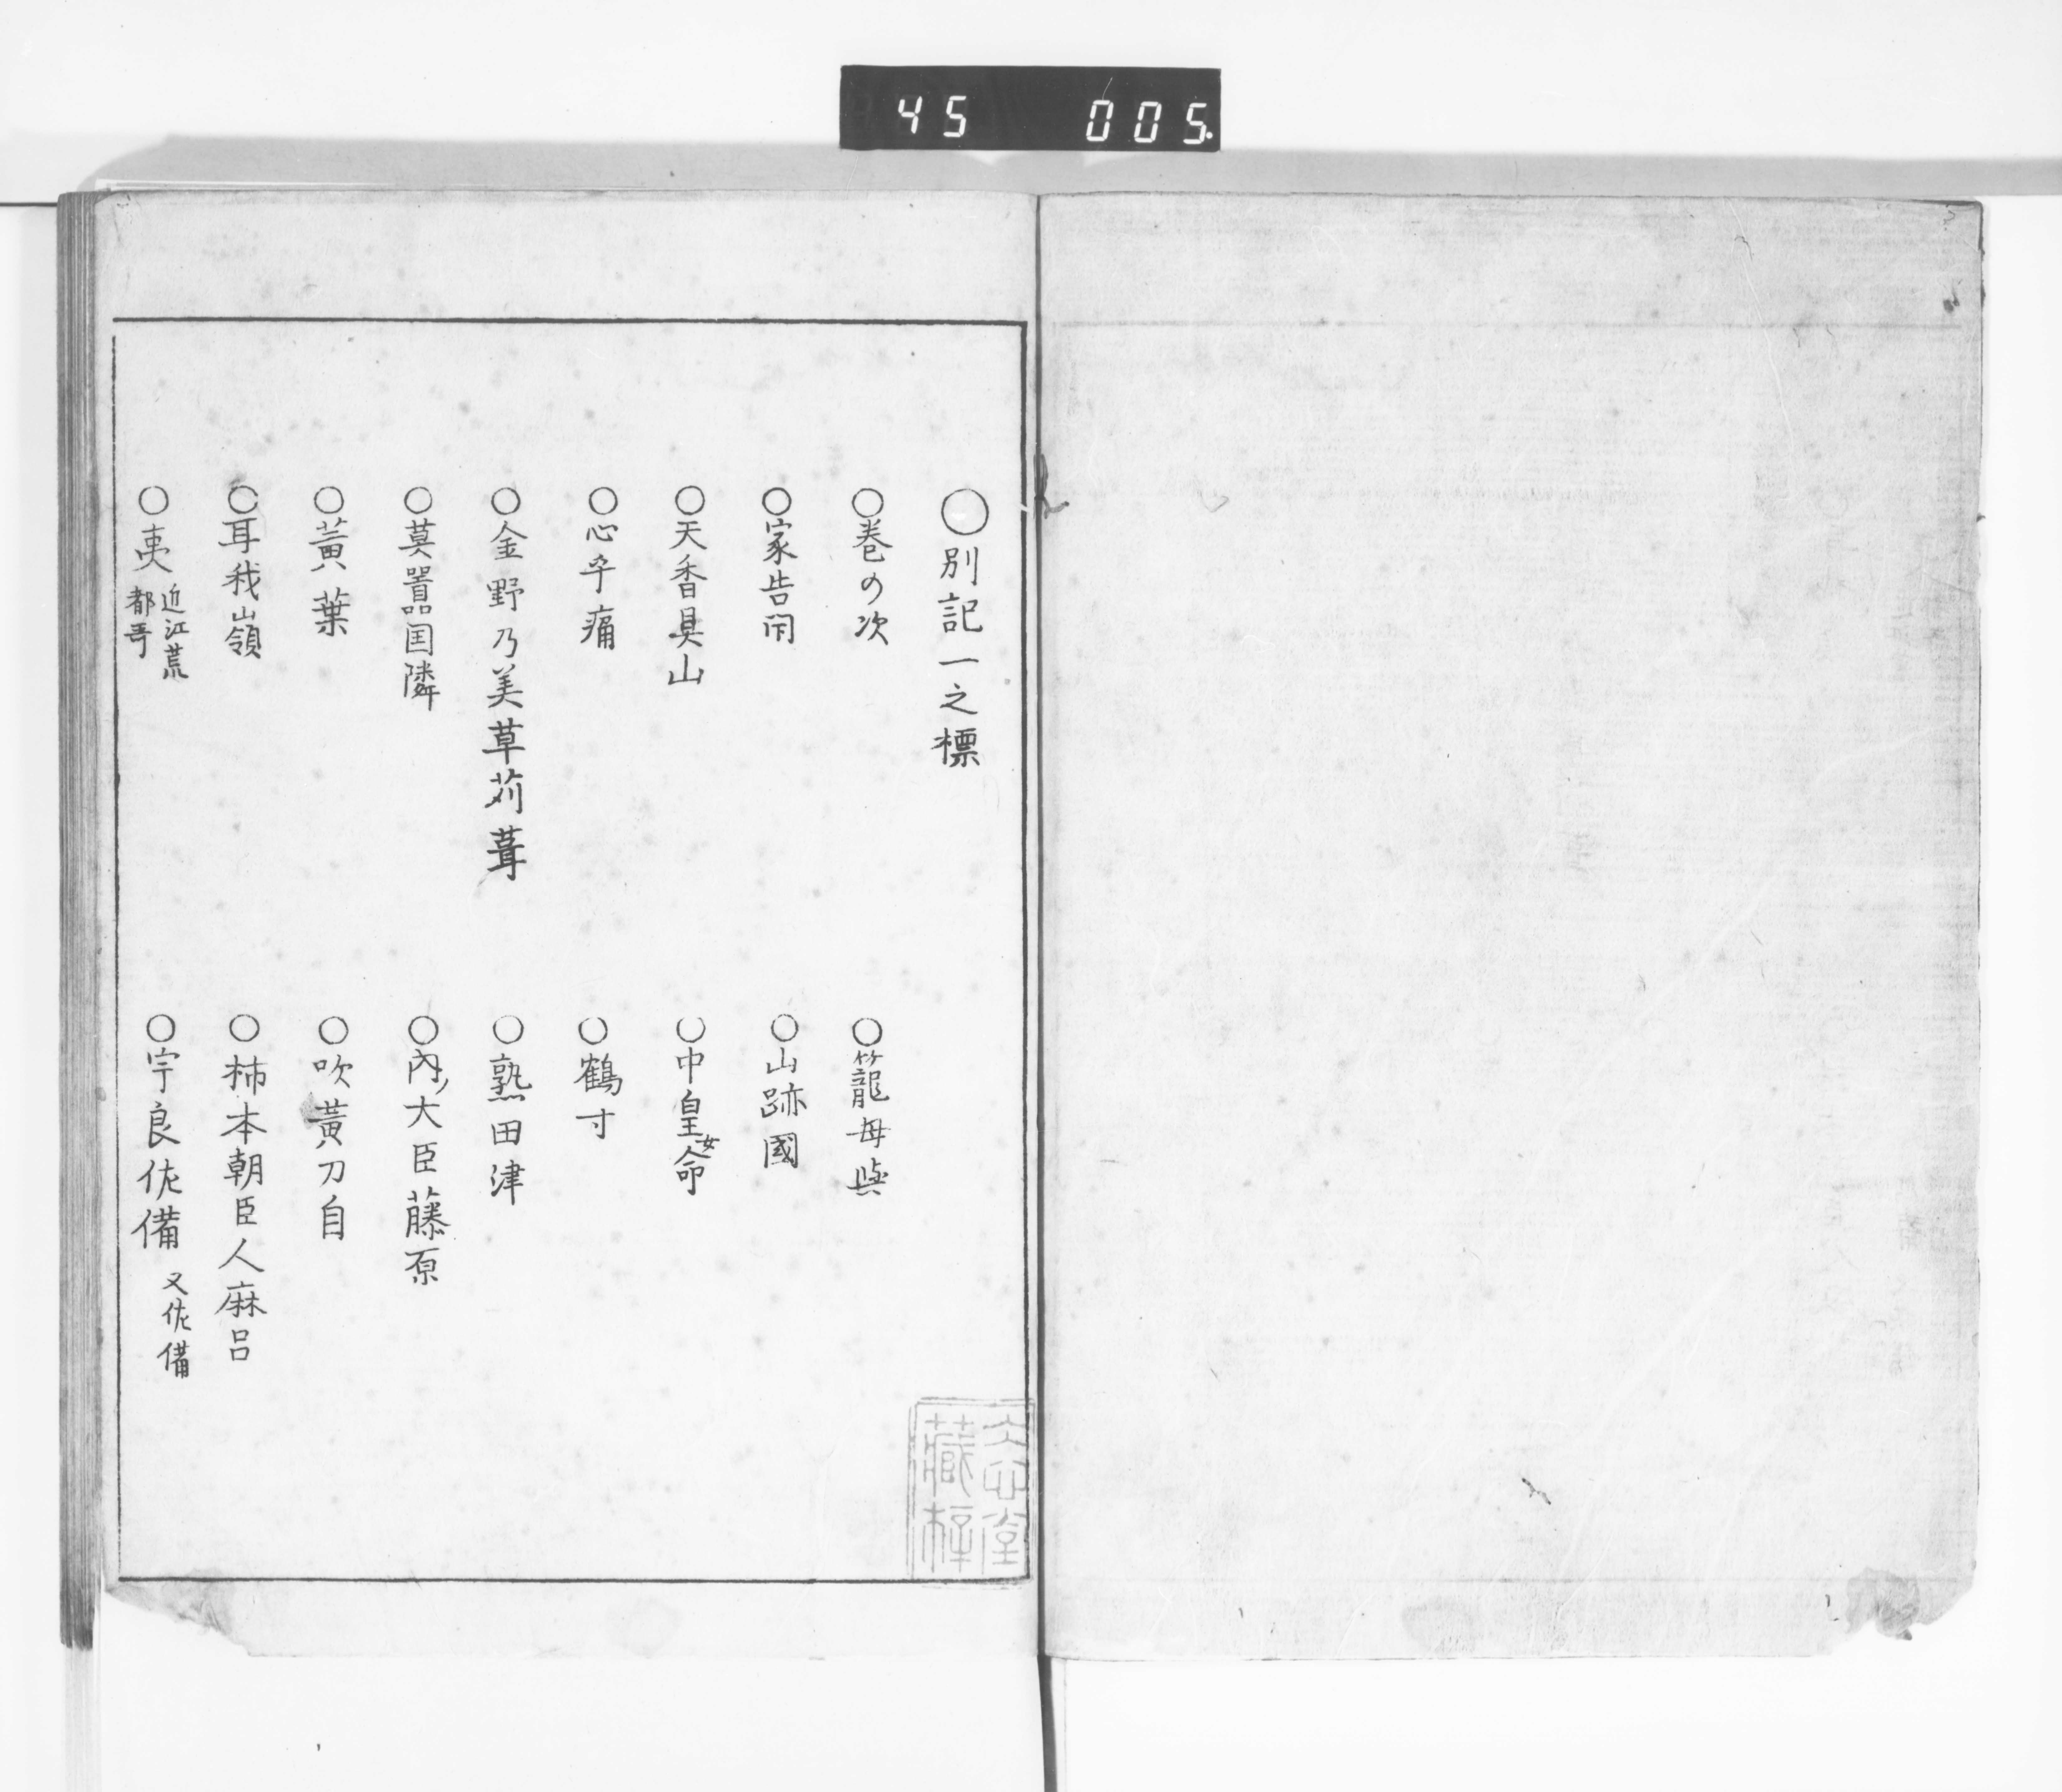 45 005.
○別記一之標
○巻の次
○籠毎與
○家告閇
○山跡國
○天香具山
○中皇女命
○心乎痛
○鶴寸
○金野乃美草苅葺
○熟田津
○莫囂圓隣
○内ノ大臣藤原
○黄葉
○吹黄刀自
○耳我嶺
○柿本朝臣人麻呂
○夷 近江荒
都哥
○宇良佐備 又佐備
堂
藏梓